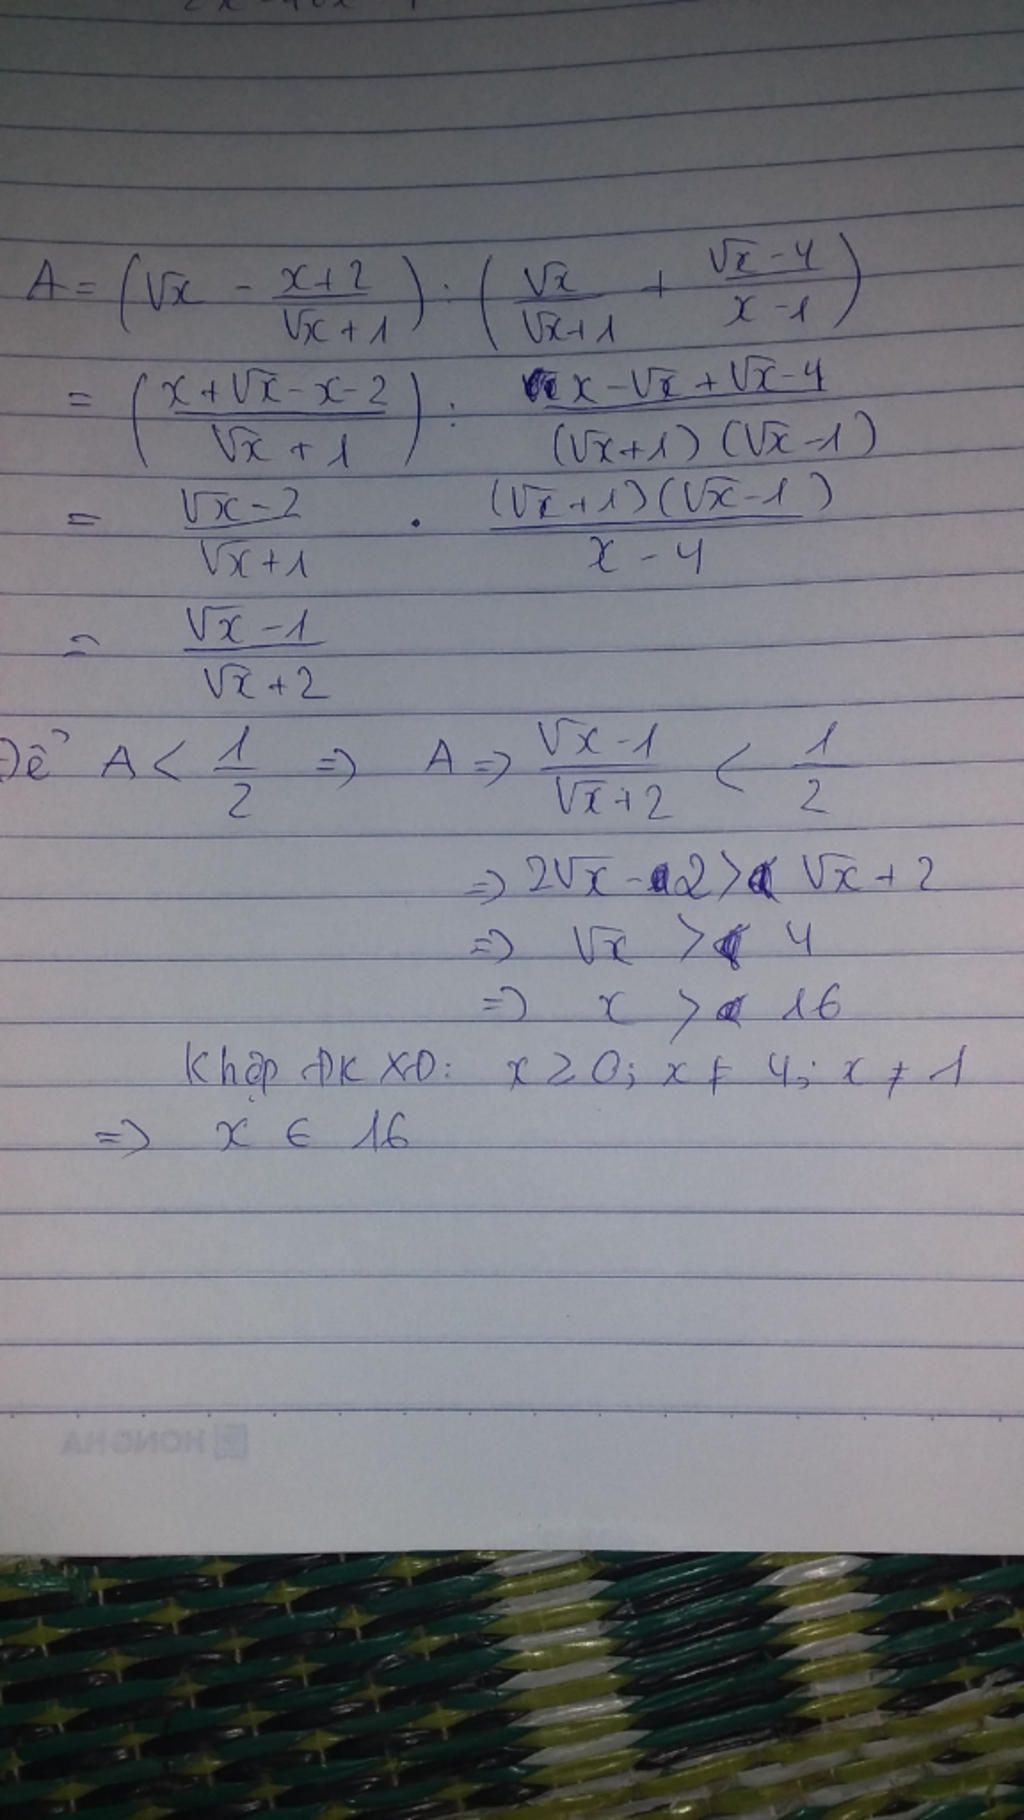 A = (√x - (x+2)/(√x+1)) : (√x/(√x+1) + (√x-4)/(x-1))
= ((x+√x-x-2)/(√x+1)) : (x-√x+√x-4)/((√x+1)(√x-1))
= (√x-2)/(√x+1) . ((√x+1)(√x-1))/(x-4)
= (√x-1)/(√x+2)
Để A < 1/2 => A => (√x-1)/(√x+2) < 1/2
=> 2√x - 2 > √x + 2
=> √x > 4
=> x > 16
Khợp ĐKXĐ: x ≥ 0; x ≠ 4; x ≠ 1
=> x ∈ 16
HONG HA